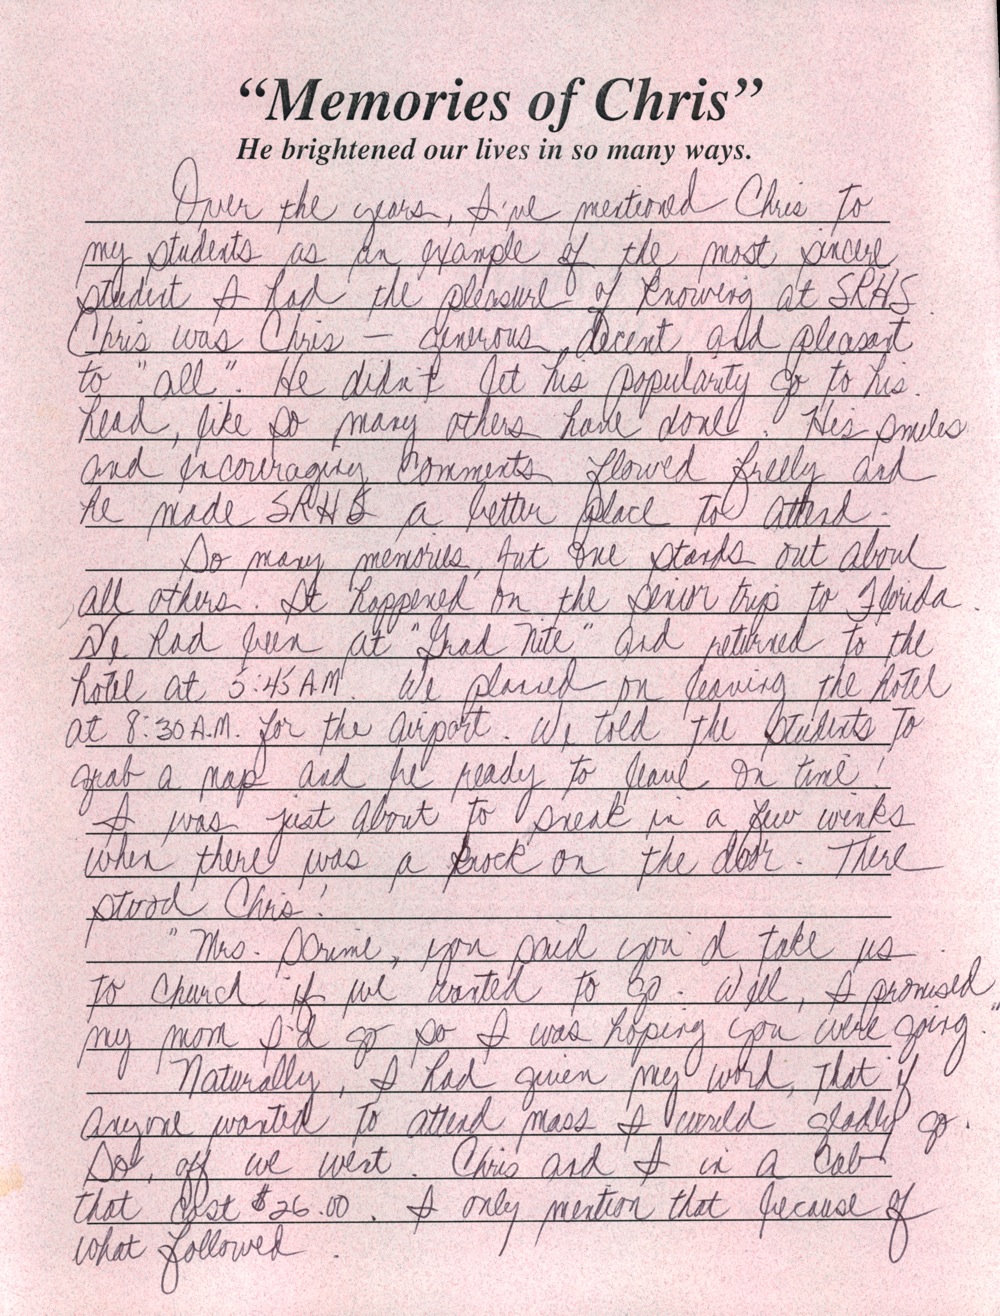 "Memories of Chris"
He brightened our lives in so many ways.
Over the years, I've mentioned Chris to
my students as an example of the most sincere
student I had the pleasure of knowing at SRHS
Chris was Chris — generous, decent and pleasant
to "all". He didn't let his popularity go to his
head, like so many others have done. His smiles
and encouraging comments flowed freely and
he made SRHS a better place to attend.
So many memories, but one stands out about
all others. It happened on the senior trip to Florida.
We had been at "Grad Nite" and returned to the
hotel at 5:45 AM. We planned on leaving the hotel
at 8:30 A.M. for the airport. We told the students to
grab a nap and be ready to leave on time!
I was just about to sneak in a few winks
when there was a knock on the door. There
stood Chris!
"Mrs. , you said you'd take us
to Church if we wanted to go. Well, I promised
my mom I'd go so I was hoping you were going."
Naturally, I had given my word, that if
anyone wanted to attend mass I would gladly go.
So, off we went. Chris and I in a Cab
that cost $26.00. I only mention that because of
what followed.